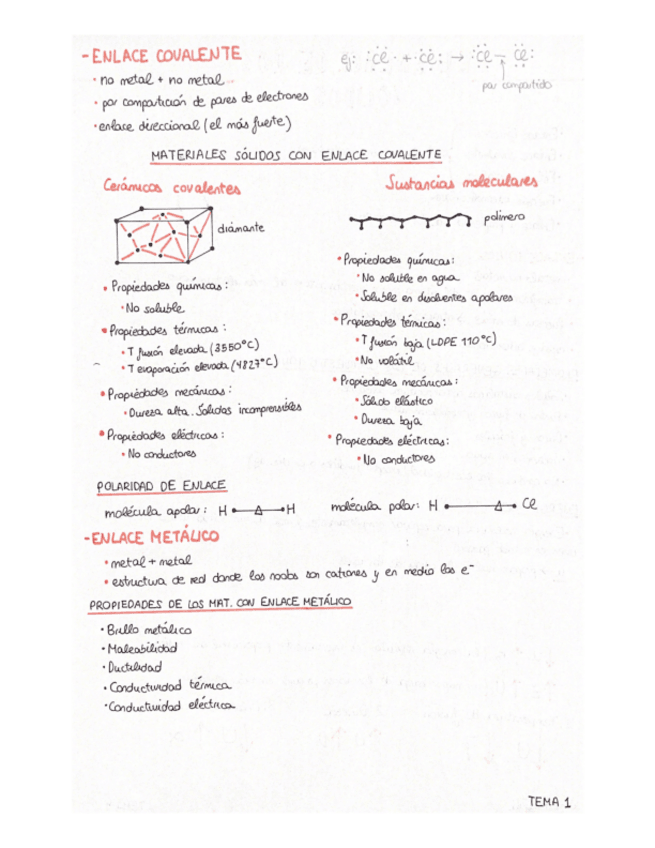 - ENLACE COVALENTE
ej: :Cl· + ·Cl: → :Cl – Cl:
par compartido
· no metal + no metal
· por compartición de pares de electrones
· enlace direccional (el más fuerte)
MATERIALES SÓLIDOS CON ENLACE COVALENTE
Cerámicos covalentes
diamante
· Propiedades químicas:
· No soluble
· Propiedades térmicas:
· T fusión elevada (3550ºC)
· T evaporación elevada (4827ºC)
· Propiedades mecánicas:
· Dureza alta. Solidos incompresibles
· Propiedades eléctricas:
· No conductores
Sustancias moleculares
polímero
· Propiedades químicas:
· No soluble en agua
· Soluble en disolventes apolares
· Propiedades térmicas:
· T fusión baja (LDPE 110ºC)
· No volátil
· Propiedades mecánicas:
· Sólido elástico
· Dureza baja
· Propiedades eléctricas:
· No conductores
POLARIDAD DE ENLACE
molécula apolar: H H
molécula polar: H Cl
- ENLACE METÁLICO
· metal + metal
· estructura de red donde los nodos son cationes y en medio los e⁻
PROPIEDADES DE LOS MAT. CON ENLACE METÁLICO
· Brillo metálico
· Maleabilidad
· Ductilidad
· Conductividad térmica
· Conductividad eléctrica
TEMA 1